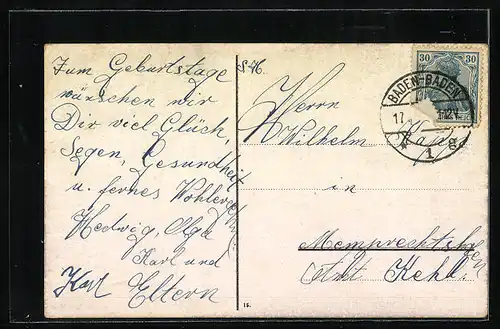 Zum Geburtstage
wünschen wir
Dir viel Glück,
Segen, Gesundheit
u. fernes Wohlergehn.
Hedwig, Olga
Karl und
Karl Eltern
S-H.
Herrn
Wilhelm
in
Memprechtshofen
Amt Kehl.
30 30
BADEN-BADEN
17.
1 g
15.